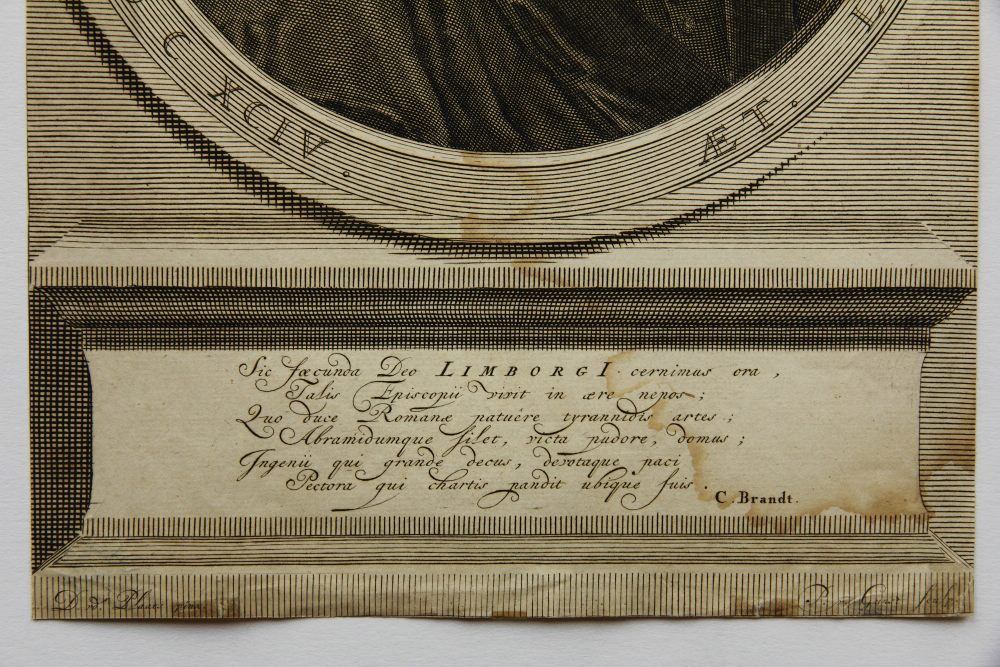 C XCIV. ÆT. L
Sic fœcunda Deo LIMBORGI cernimus ora,
Talis Episcopii vivit in ære nepos;
Quo duce Romanæ patuére tyrannidis artes;
Abramidumque silet, victa pudore, domus;
Ingenii qui grande decus, devotaque paci
Pectora qui chartis pandit ubique suis.
C. Brandt.
D. vdr. Plaaes pinx. P. v. Gunst sculp.